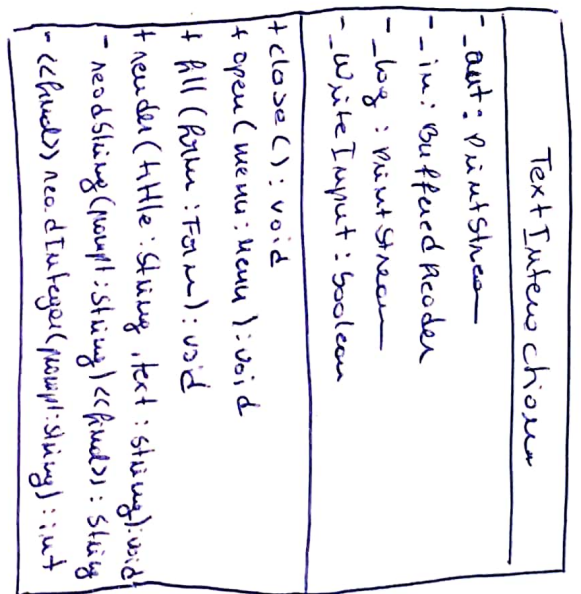 TextInteraction
- _out: PrintStream
- _in: BufferedReader
- _log: PrintStream
- _writeInput: boolean
+ close(): void
+ open(menu: Menu): void
+ fill(form: Form): void
+ render(title: String, text: String): void
- readString(prompt: String) <<final>>: String
- <<final>> readInteger(prompt: String): int